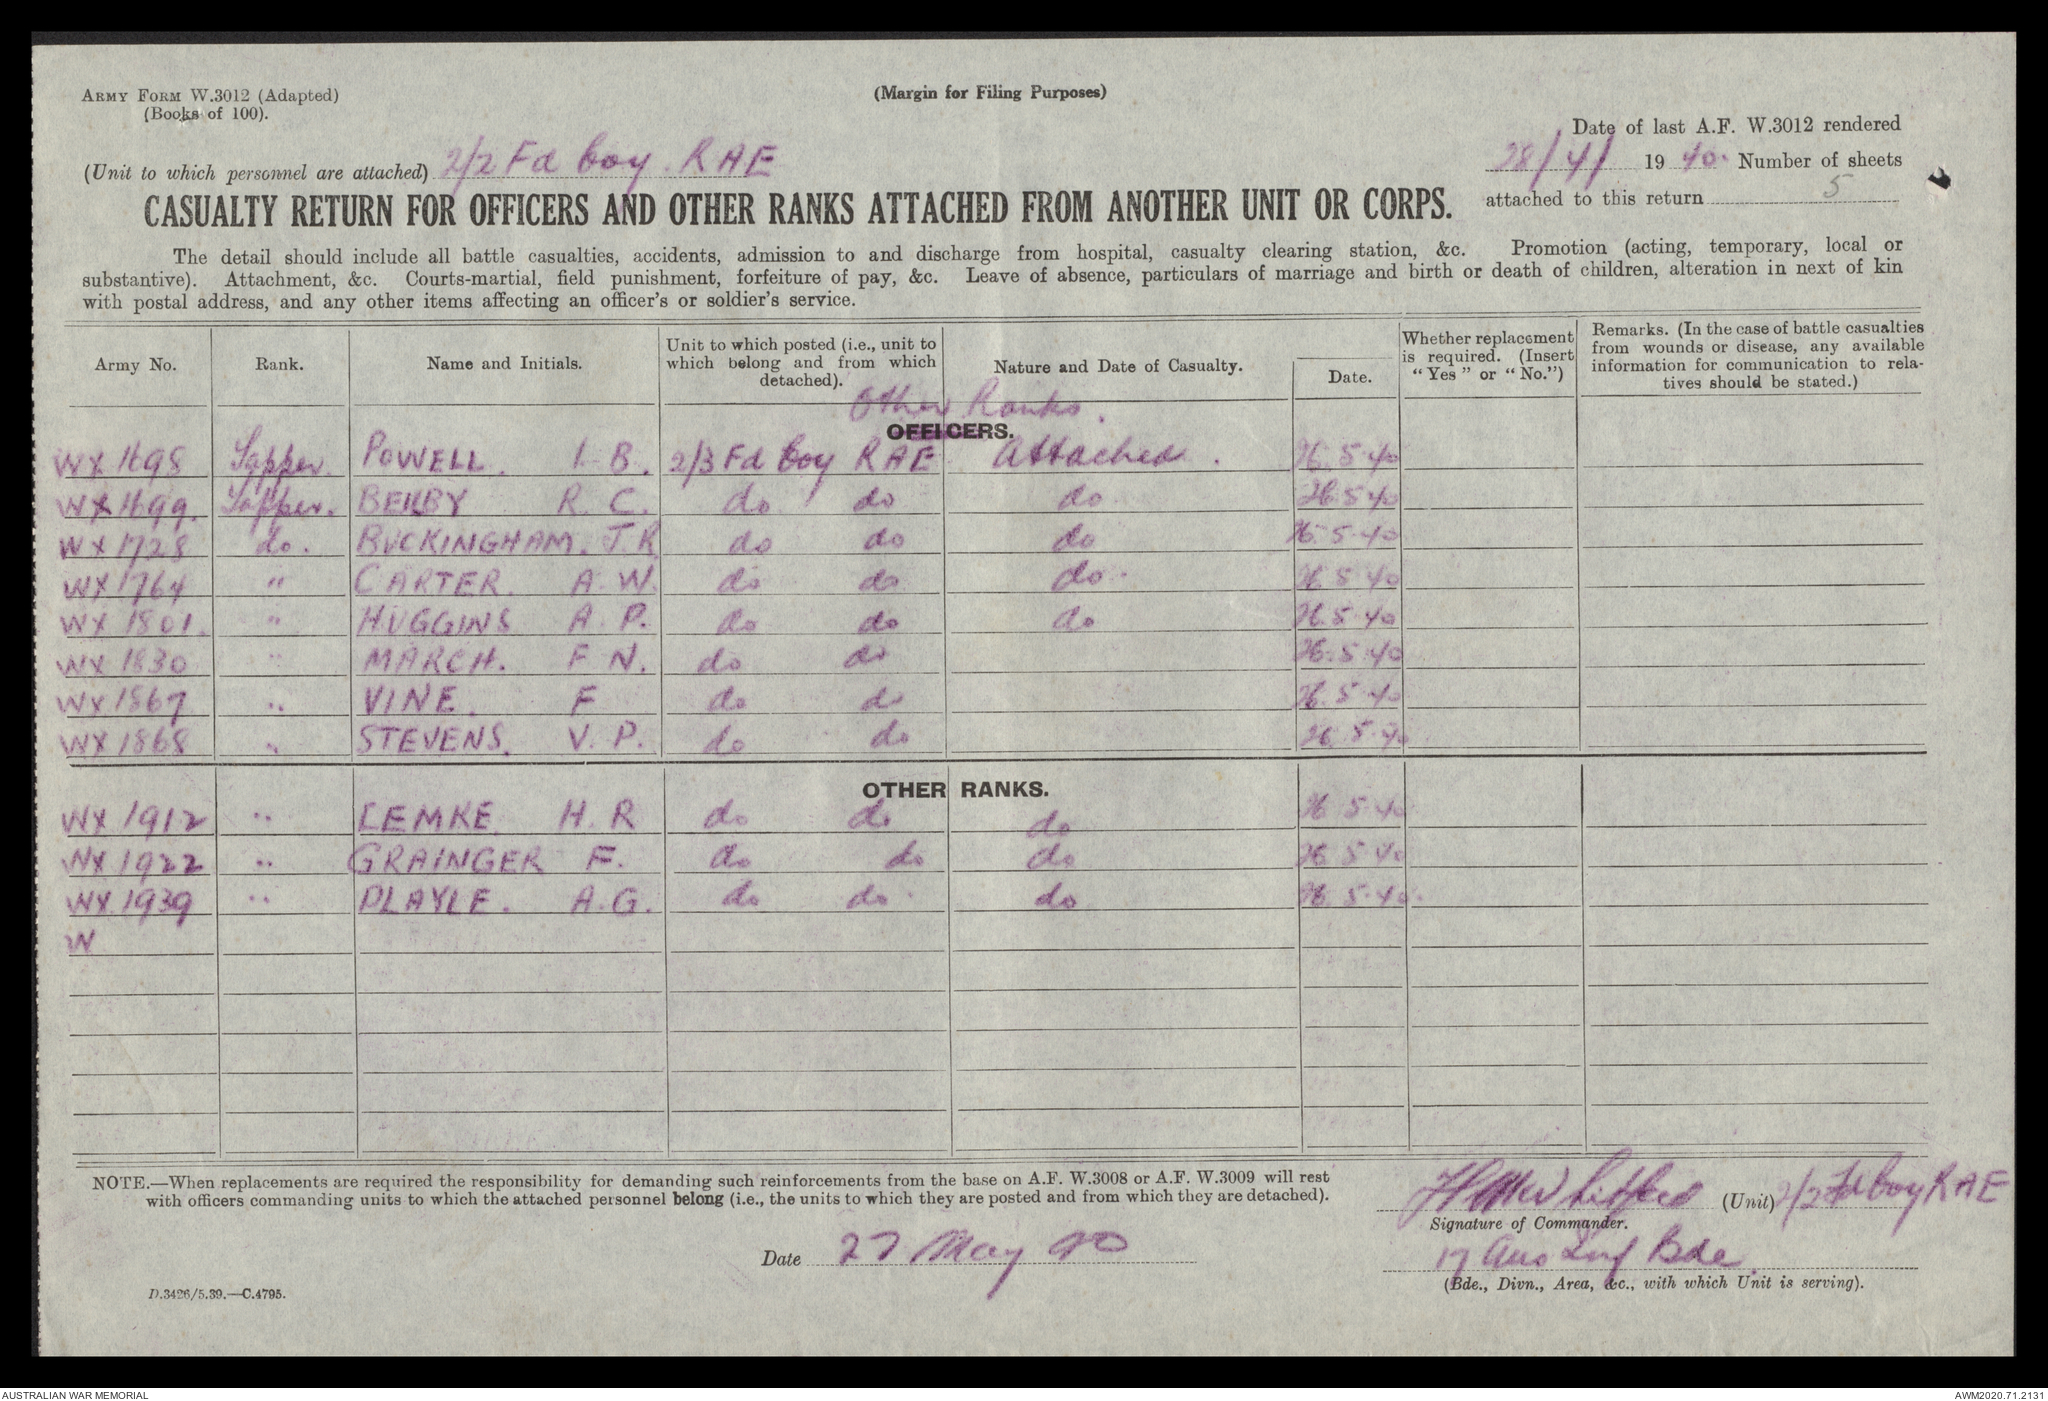 ARMY FORM W.3012 (Adapted)
(Books of 100).
(Margin for Filing Purposes)
Date of last A.F. W.3012 rendered
28/4/ 1940. Number of sheets
attached to this return 5
(Unit to which personnel are attached) 2/2 Fd Coy. RAE
CASUALTY RETURN FOR OFFICERS AND OTHER RANKS ATTACHED FROM ANOTHER UNIT OR CORPS.
The detail should include all battle casualties, accidents, admission to and discharge from hospital, casualty clearing station, &c. Promotion (acting, temporary, local or
substantive). Attachment, &c. Courts-martial, field punishment, forfeiture of pay, &c. Leave of absence, particulars of marriage and birth or death of children, alteration in next of kin
with postal address, and any other items affecting an officer's or soldier's service.
Army No. Rank. Name and Initials. Unit to which posted (i.e., unit to which belong and from which detached). Nature and Date of Casualty. Date. Whether replacement is required. (Insert "Yes" or "No.") Remarks. (In the case of battle casualties from wounds or disease, any available information for communication to relatives should be stated.)
Other Ranks.
OFFICERS.
WX 1698 Sapper. POWELL. I. B. 2/3 Fd Coy RAE Attached. 26.5.40
WX 1699. Sapper. BEILBY R. C. do do do 26.5.40
WX 1728 do. BUCKINGHAM. J.R do do do 26.5.40
WX 1764 " CARTER. A. W. do do do. 26.5.40
WX 1801. " HUGGINS A. P. do do do 26.5.40
WX 1830 " MARCH. F N. do do 26.5.40
WX 1867 " VINE. F do do 26.5.40
WX 1868 " STEVENS. V. P. do do 26.5.40
OTHER RANKS.
WX 1912 " LEMKE H. R do do do 26 5.40
WX 1922 " GRAINGER F. do do do 26 5 40
WX 1939 " PLAYLE. A.G. do do. do 26.5.40.
W
NOTE.—When replacements are required the responsibility for demanding such reinforcements from the base on A.F. W.3008 or A.F. W.3009 will rest
with officers commanding units to which the attached personnel belong (i.e., the units to which they are posted and from which they are detached).
(Unit) 2/2 Fd Coy RAE
Signature of Commander.
Date 27 May 40
17 Aus Inf Bde.
(Bde., Divn., Area, &c., with which Unit is serving).
D.3426/5.39.—C.4795.
AUSTRALIAN WAR MEMORIAL
AWM2020.71.2131